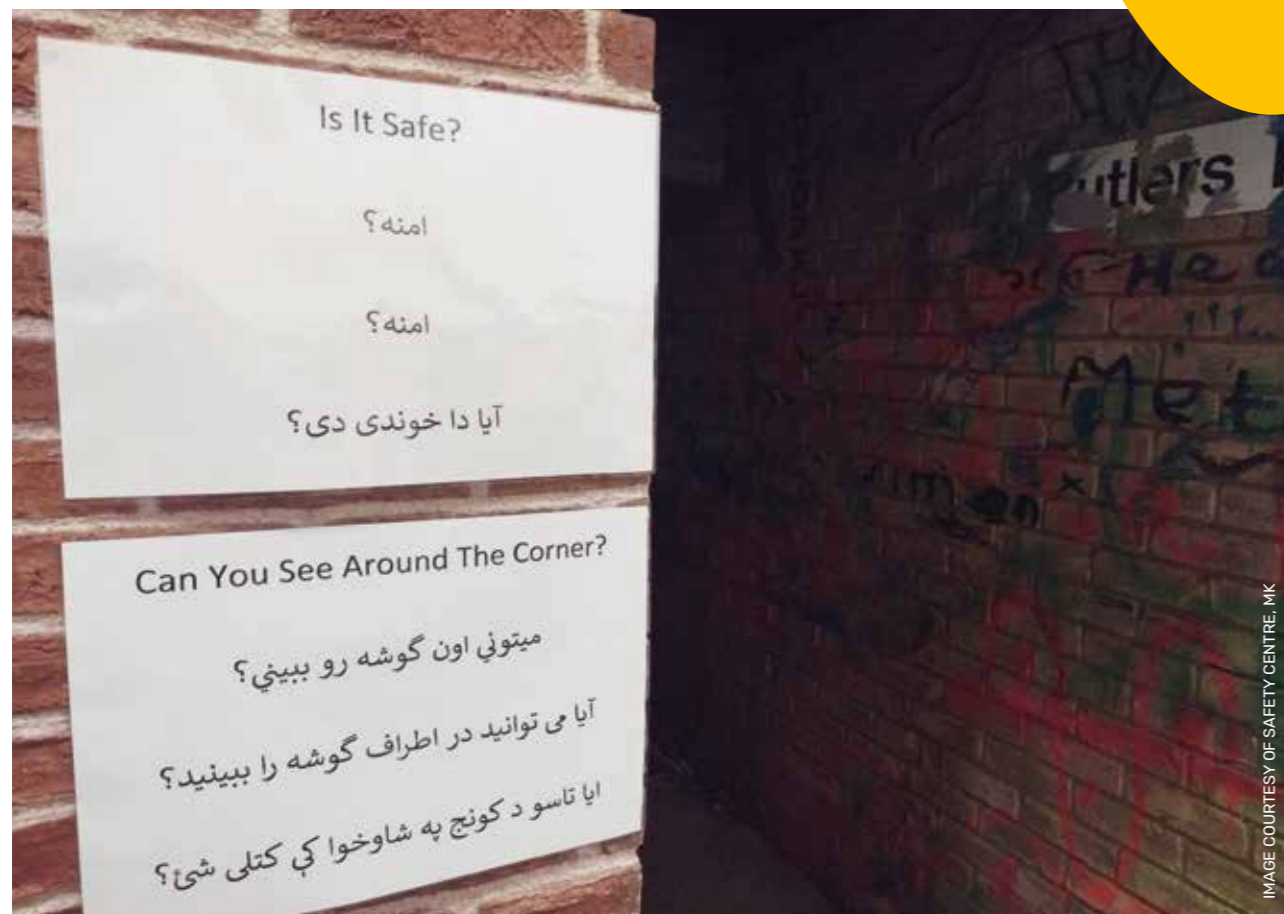 Is It Safe?
امنه؟
امنه؟
آیا دا خوندی دی؟
Can You See Around The Corner?
میتوني اون گوشه رو ببیني؟
آیا می توانید در اطراف گوشه را ببینید؟
ایا تاسو د کونج په شاوخوا کې کتلی شئ؟
utlers
Met
IMAGE COURTESY OF SAFETY CENTRE, MK